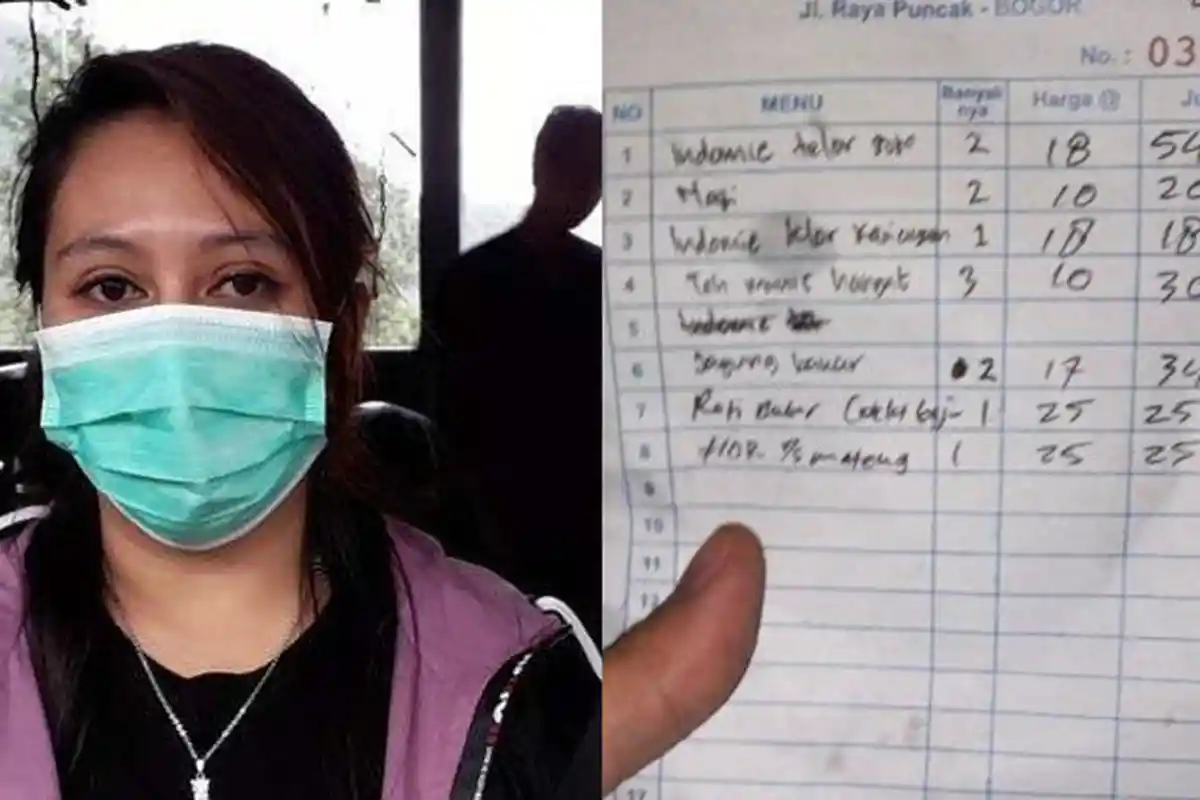 Jl. Raya Puncak - BOGOR
No.: 03
NO MENU Banyak nya Harga @ Ju
1 Indomie telor 2 18 54
2 Nasi 2 10 20
3 Indomie telor 1 18 18
4 Teh manis hangat 3 10 30
5 Indomie
6 Jagung bakar 2 17 34
7 Roti Bakar (coklat keju 1 25 25
8 1/2 mateng 1 25 25
9
10
11
12
17